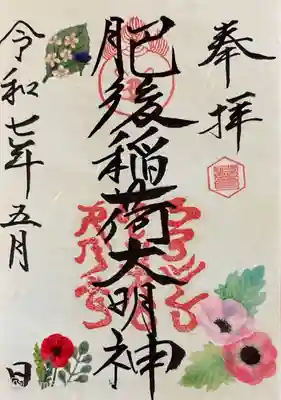 奉拝
肥後稲荷大明神
令和七年五月 日